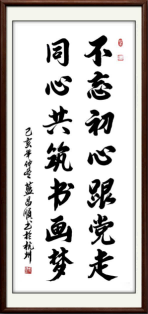 不忘初心跟党走
同心共筑书画梦
己亥年仲冬蓝昌顺书于杭州